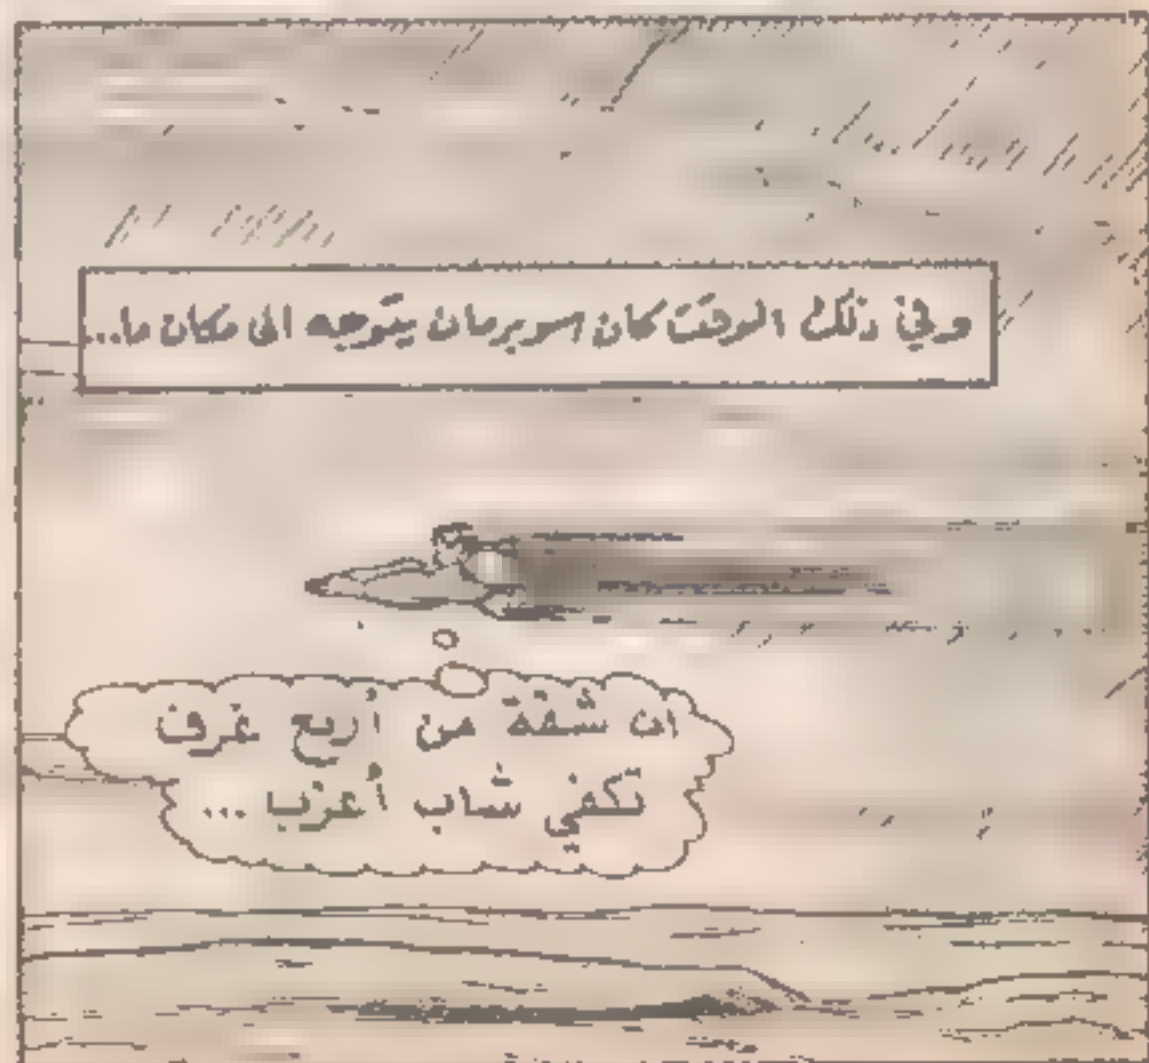 وفي ذلك الوقت كان سوبرمان يتوجه الى مكان ما...
ان شقة من أربع غرف
تكفي شاب أعزب ...